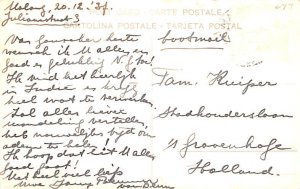 Malang, 20.12.'37.
Julianastraat 3
CARTE POSTALE
CARTOLINA POSTALE - TARJETA POSTAL
Van ganscher harte
wensch ik U alles en
goed en gelukkig N. Jaar!
Ik vind het heerlijk
in Indië en krijg
heel wat te verwerken.
Zal alles liever
mondeling vertellen,
heb nauwelijks tijd om
adem te halen!
Ik hoop dat dit U alles
goed
Met heel veel liefs
van
bootmail
Fam. Kuiper
Stadhouderslaan
's Gravenhage
Holland.